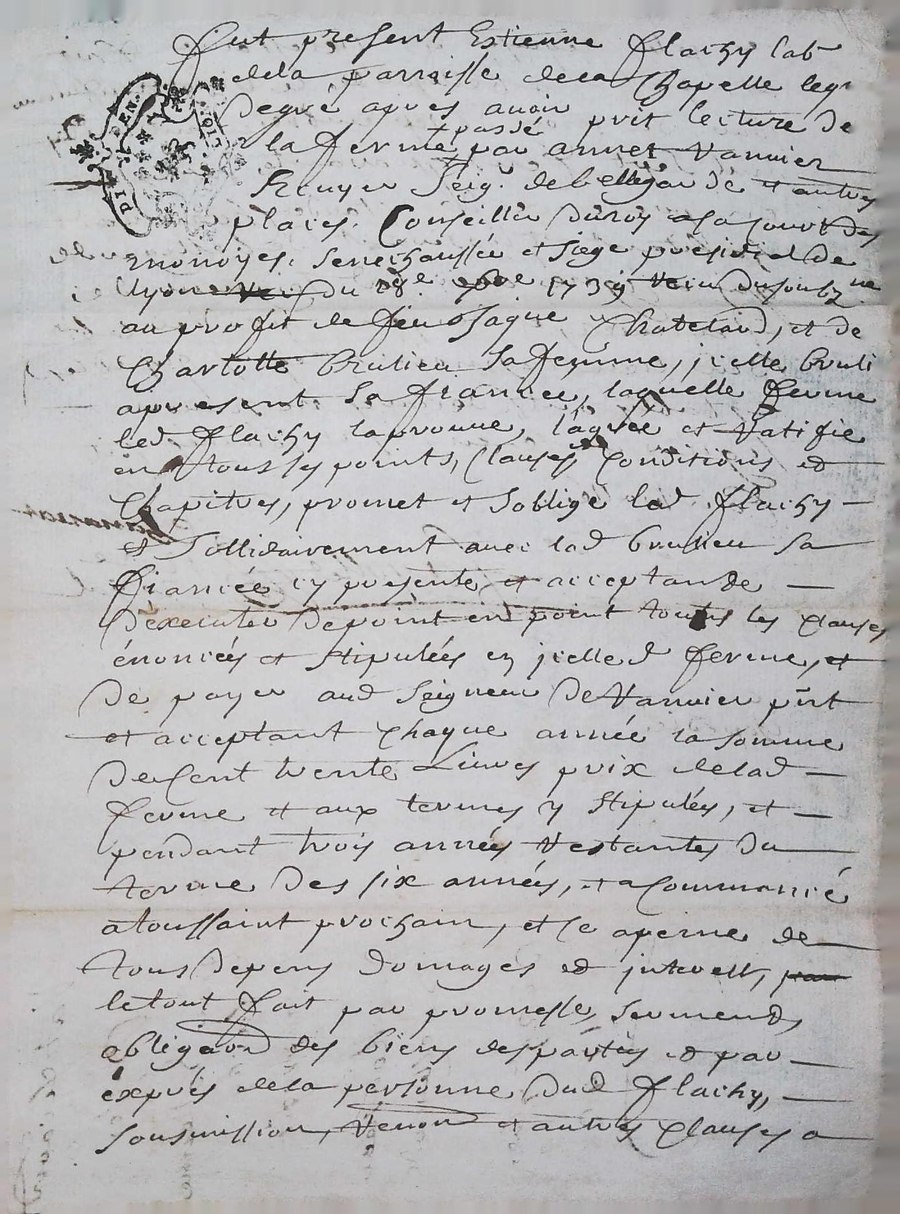 Fut present Estienne flachy lab
dela parroisse dela Chapelle
Degré apres avoir prit lecture de
passé
la ferme par annet Vannier
Seigr. de bellegarde et autres
places. Conseiller du roy a la cour des
monoyes, senechaussée et siege presidial de
lyon du 28e 1739
au profit de feu Jaque Chatelard, et de
Charlotte brulieu sa femme, jcelle bruli
apresent sa fiancée, laquelle ferme
led flachy laprouve, lagrée et Ratifie
en tous ses points, Clauses Conditions et
Chapitres, promet et soblige led flachy
et sollidairement avec lad brulieu sa
fiancée cy presente et acceptande
Dexecuter De point en point toutes les Clauses
énoncées et stipulées en jcelle d ferme, et
De payer aud Seigneur De Vannier pnt
et acceptant Chaque année la somme
De Cent trente Livres prix delad
ferme et aux termes y stipulés, et
pendant trois années Restantes Du
terme Des six années, et a Commancé
a toussaint prochain, et ce a peine de
tous Depens Domages et jnterest,
le tout fait par promesse, serment,
obligeant des biens desparties et par
expres dela personne Dud flachy,
soumission, Renon et autres Clauses a